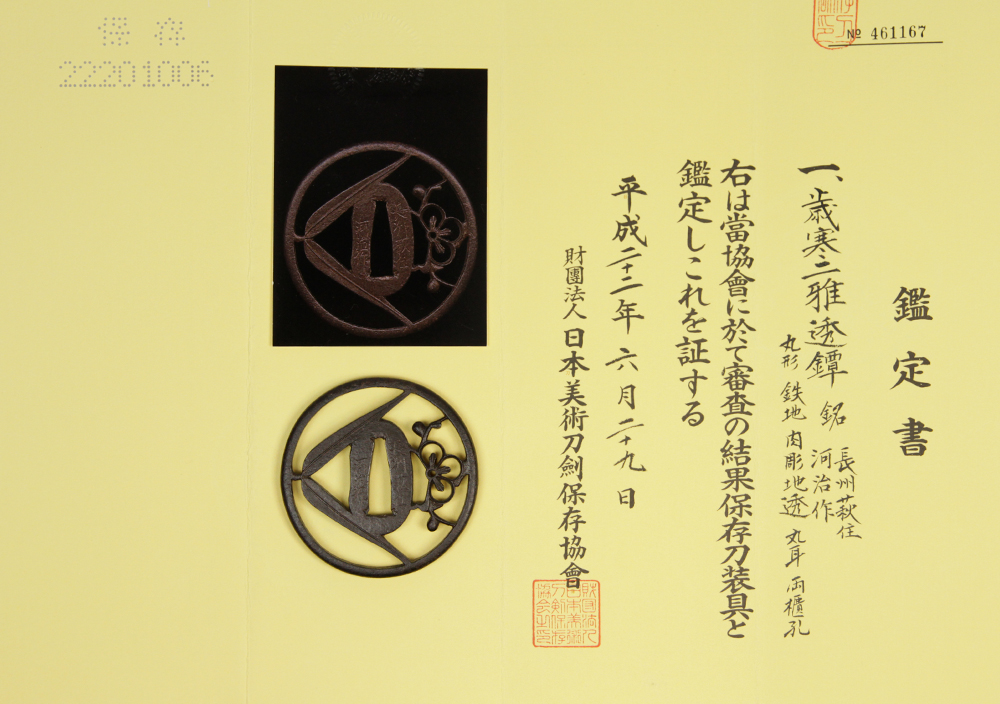 保存
22201006
№ 461167
鑑定書
一、歳寒二雅透鐔 銘 長州萩住
河治作
丸形 鉄地 肉彫地透 丸耳 両櫃孔
右は當協會に於て審査の結果保存刀装具と
鑑定しこれを証する
平成二十二年六月二十九日
財團法人 日本美術刀劍保存協會